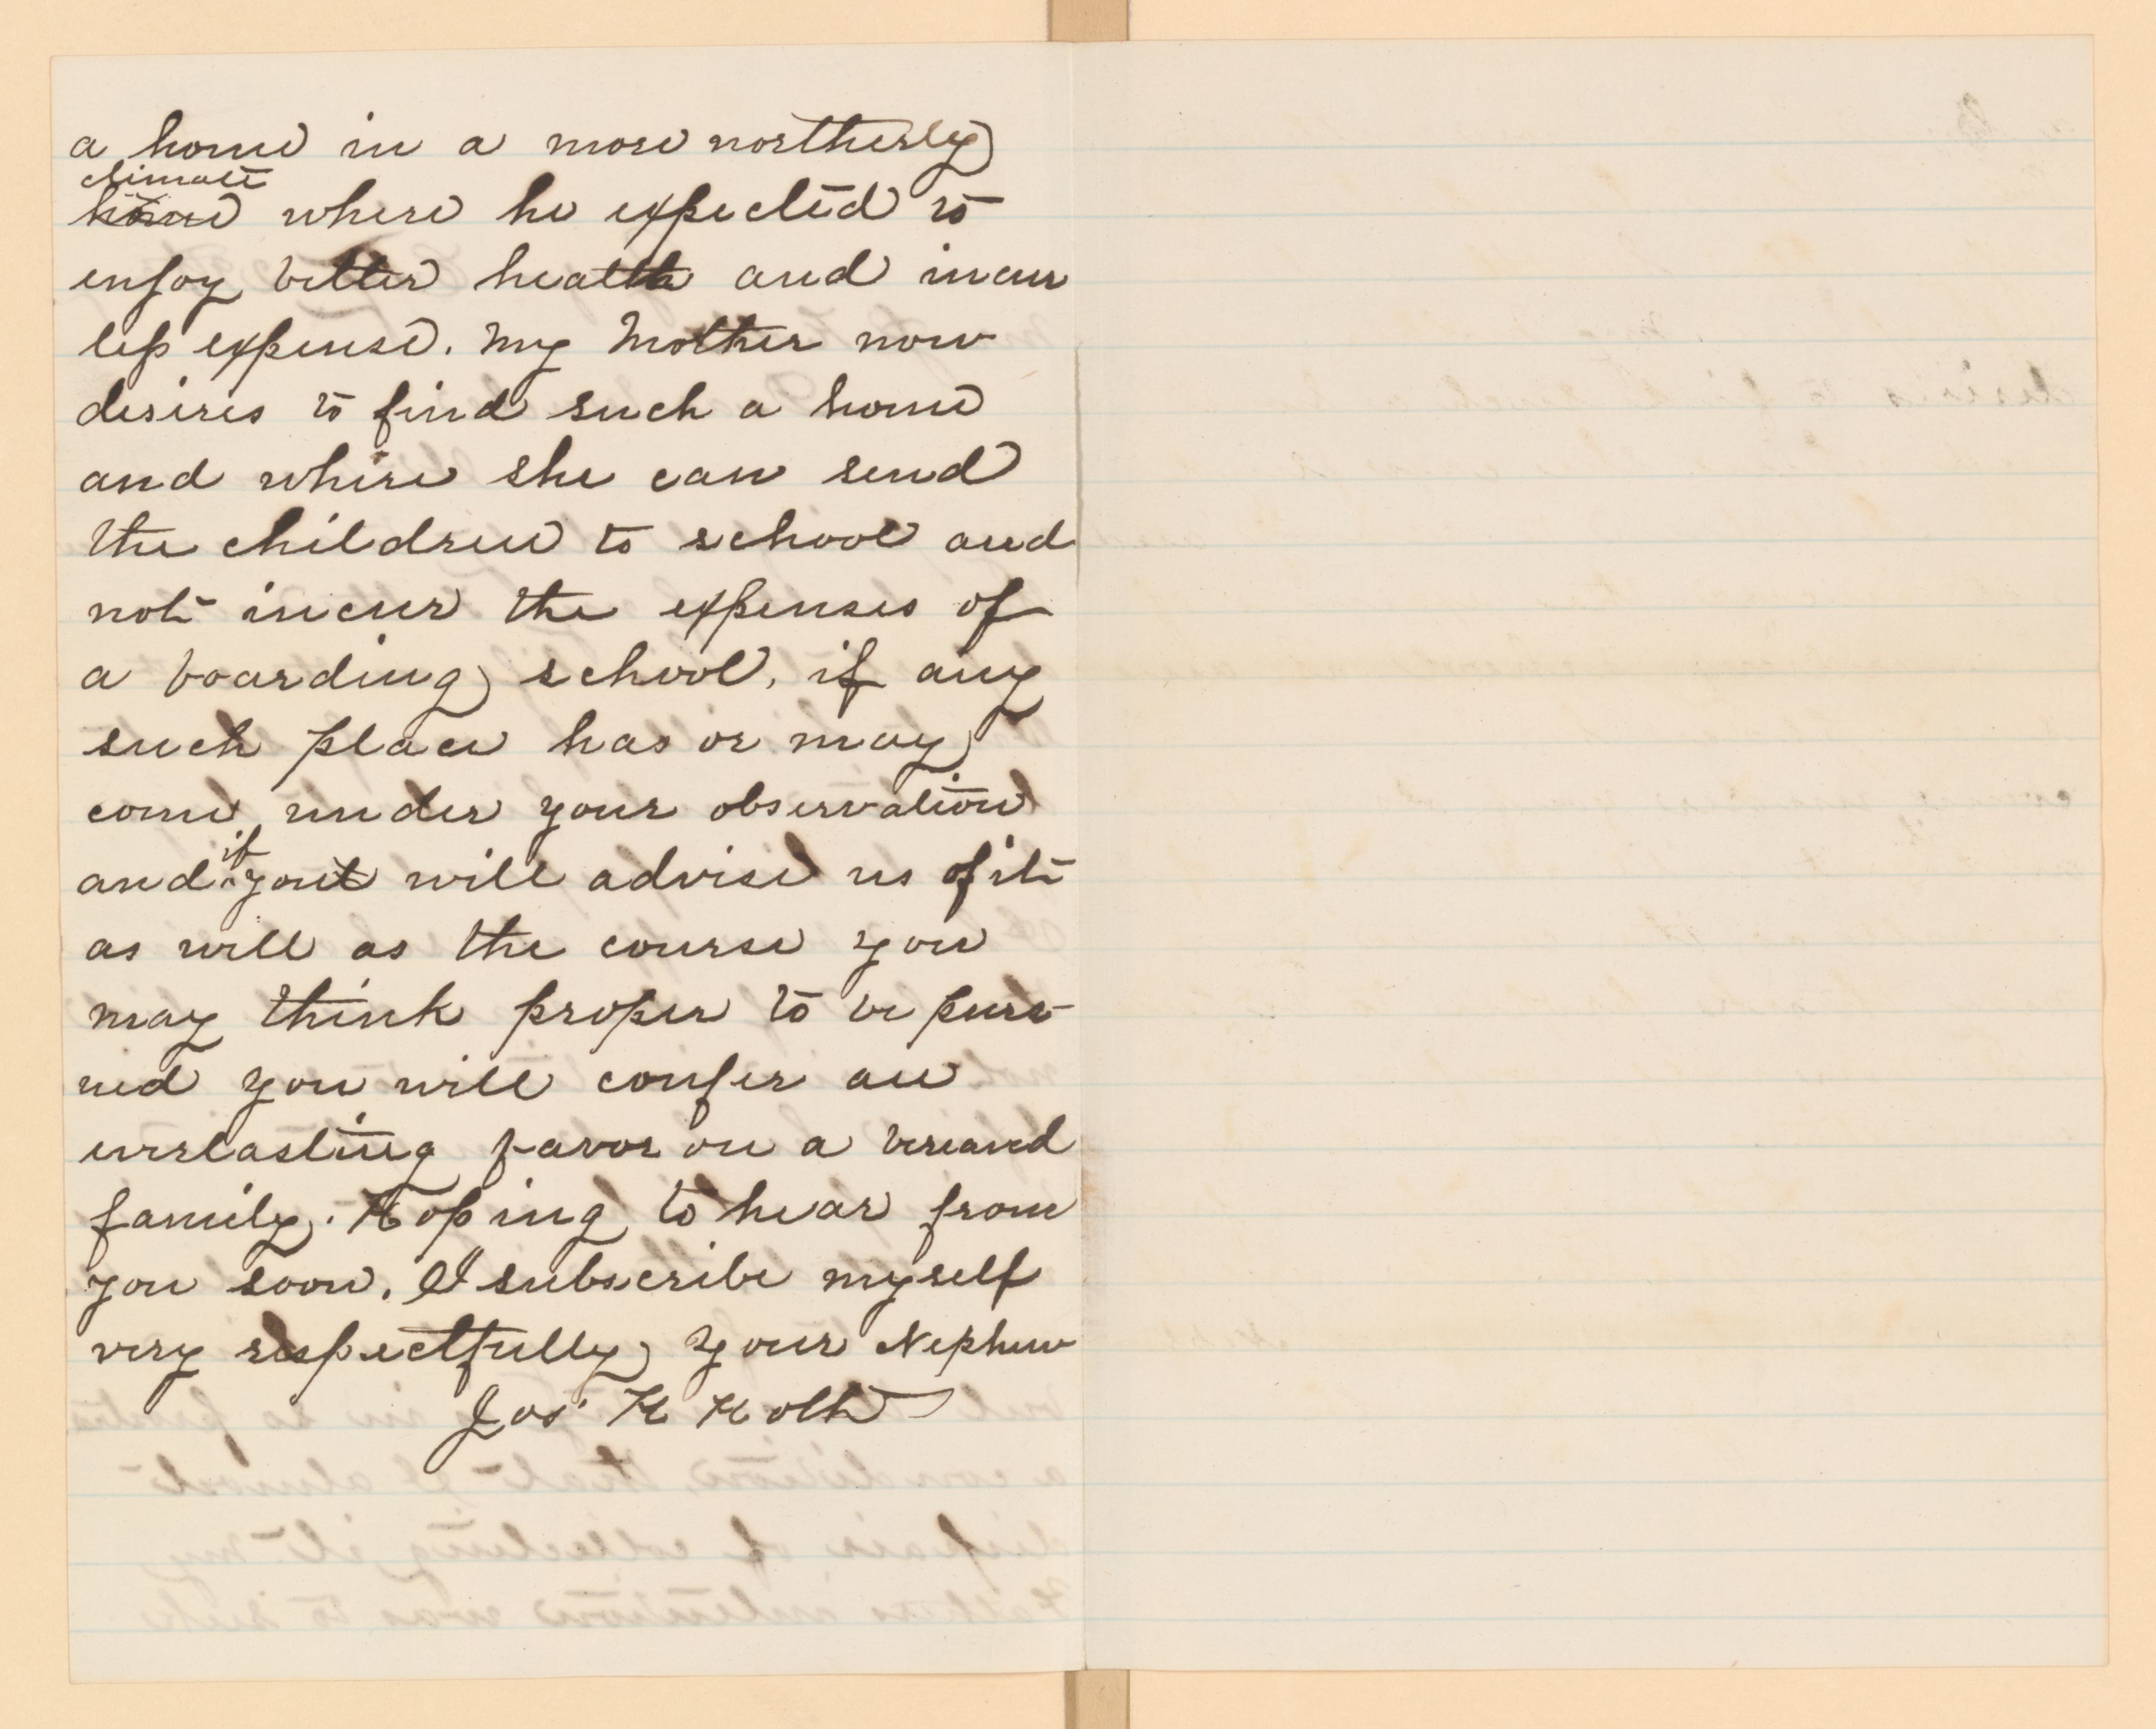 a home in a more northerly
climate
home where he expected to
enjoy better health and incur
less expense. My Mother now
desires to find such a home
and where she can send
the children to school and
not incur the expenses of
a boarding school, if any
such place has or may
come under your observation
if
and you will advise us of it
as well as the course you
may think proper to be purs-
ued you will confer an
everlasting favor on a bereaved
family. Hoping to hear from
you soon, I subscribe myself
very respectfully your Nephew
Jos. H Holt